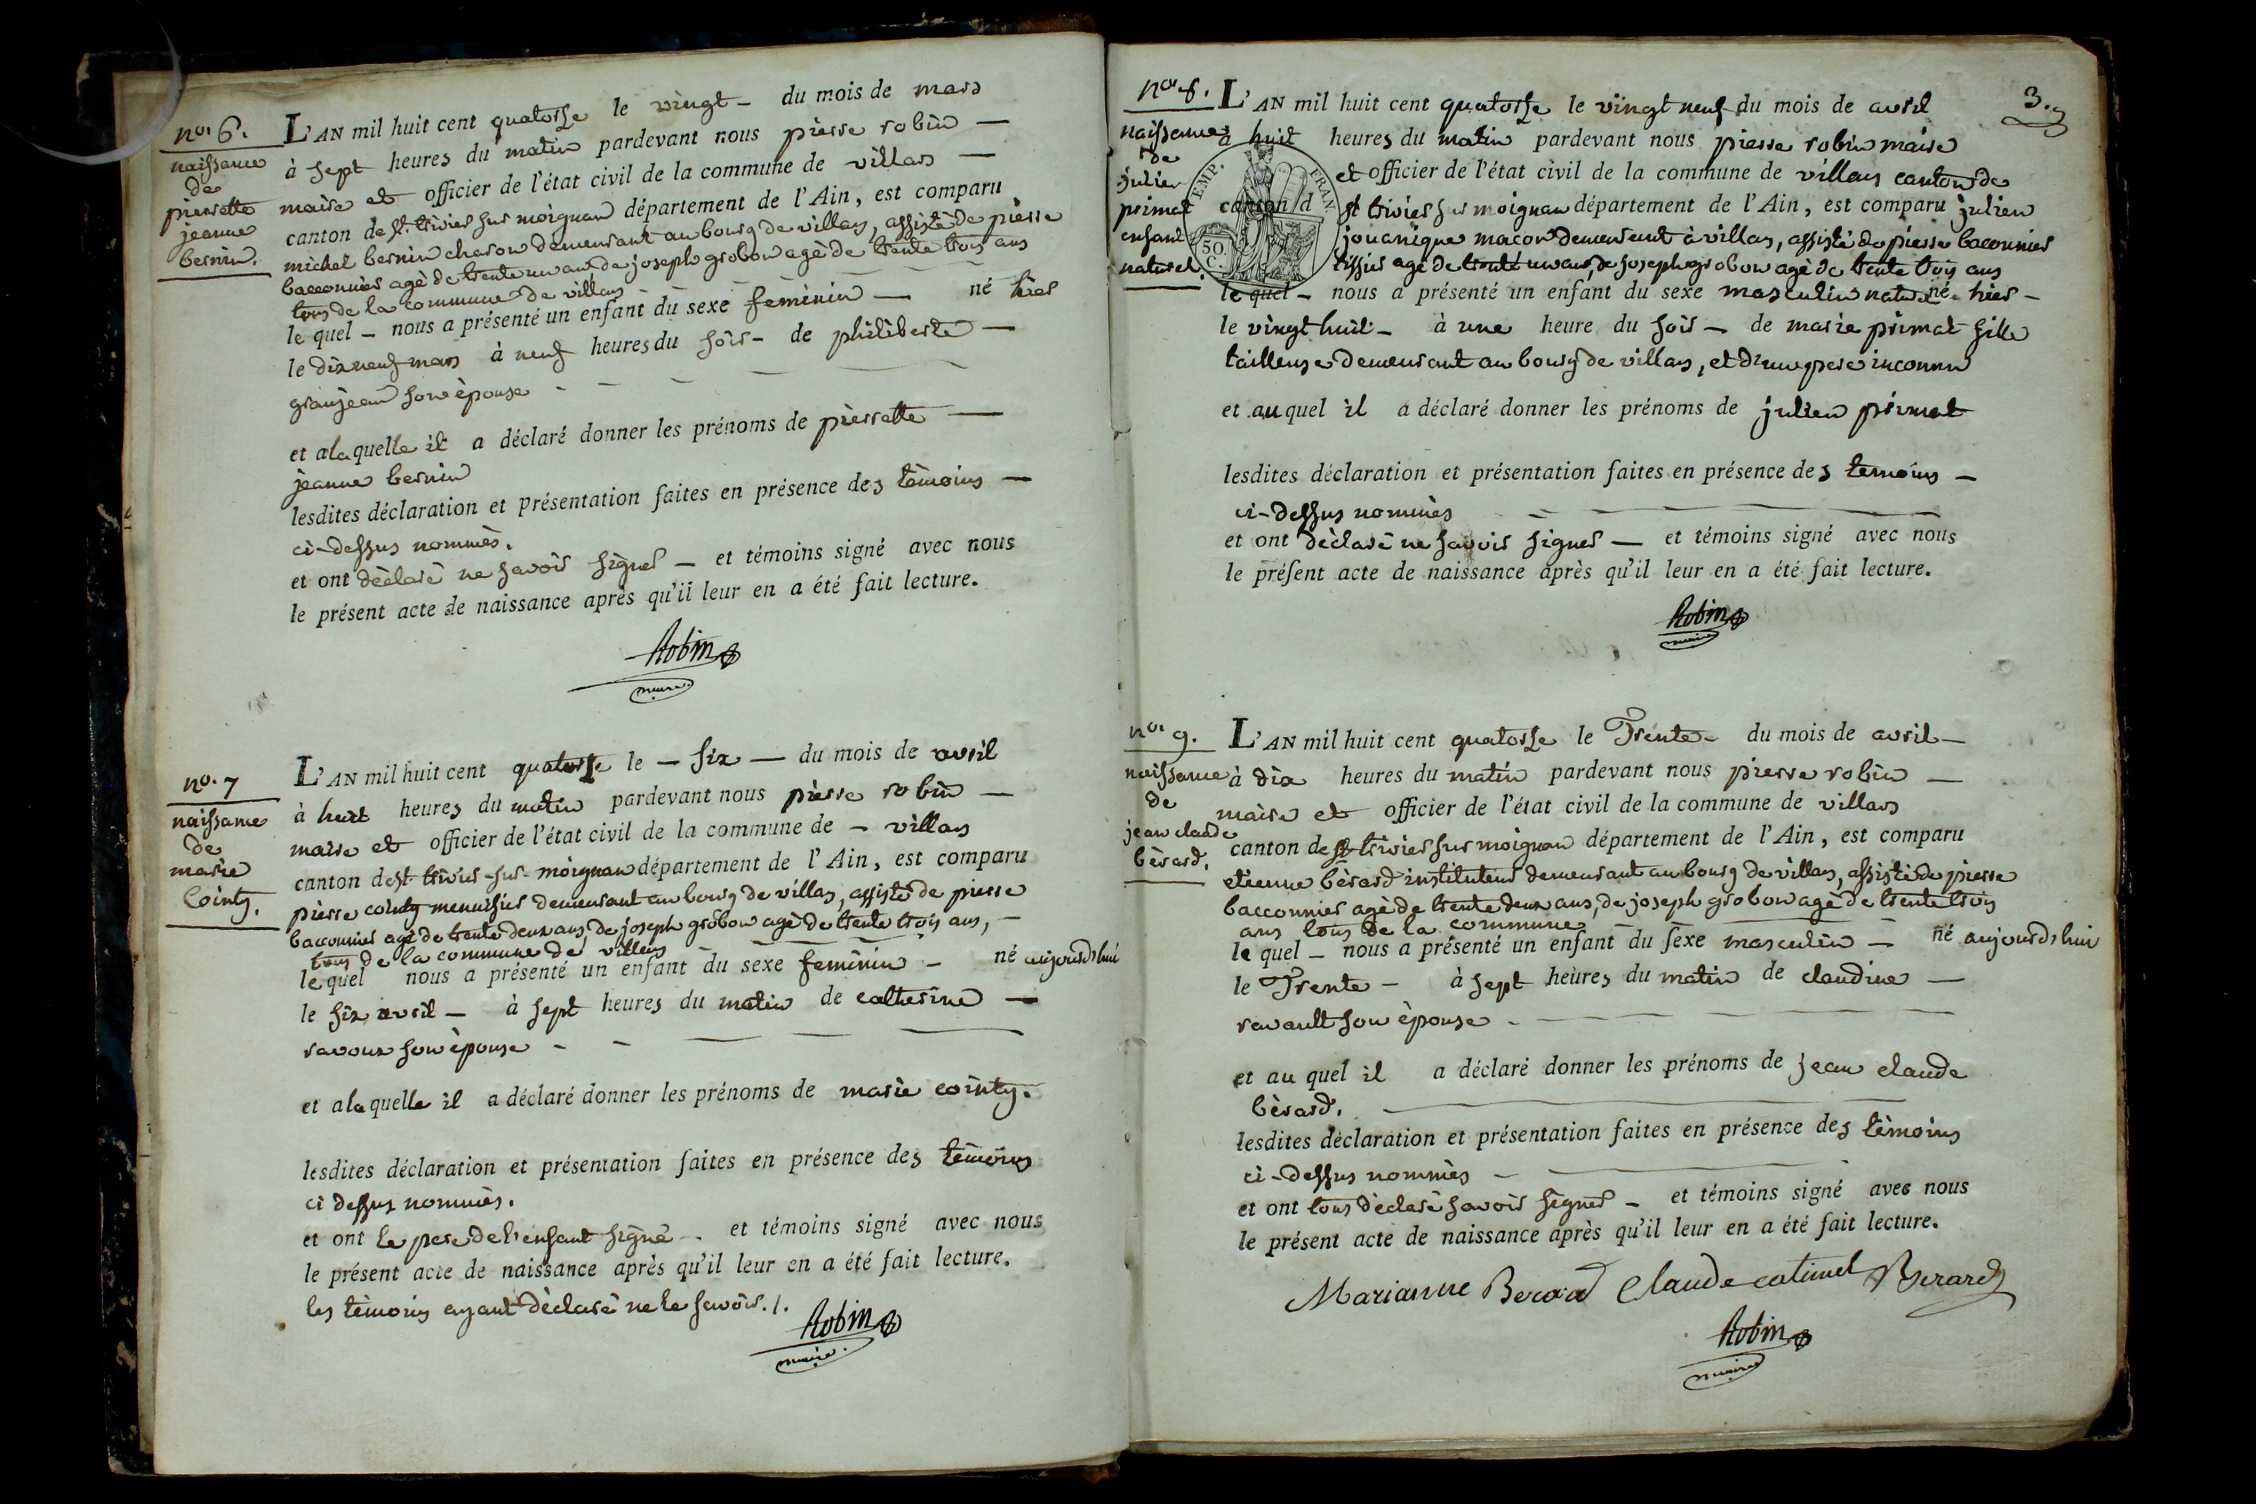 no. 6.
naissance
de
pierrette
jeanne
bernin.
L'AN mil huit cent quatorse le vingt - du mois de mars
à sept heures du matin pardevant nous pierre robin —
maire et officier de l'état civil de la commune de villars —
canton de st. trivier sur moignan département de l'Ain, est comparu
michel bernin charon demeurant au bourg de villars, assisté de pierre
bacconnier agé de trente un ans de joseph grobon agé de trente trois ans
tous de la commune de villars
le quel - nous a présenté un enfant du sexe feminin — né hier
le dix neuf mars à neuf heures du soir - de philiberte —
granjean son épouse
et a laquelle il a déclaré donner les prénoms de pierrette —
jeanne bernin
lesdites déclaration et présentation faites en présence des témoins —
ci-dessus nommés.
et ont déclaré ne savoir signer — et témoins signé avec nous
le présent acte de naissance après qu'il leur en a été fait lecture.
Robin
maire.
no. 7
naissance
de
marie
Cointy.
L'AN mil huit cent quatorse le — six — du mois de avril
à huit heures du matin pardevant nous pierre robin —
maire et officier de l'état civil de la commune de - villars
canton de st. trivier-sur-moignan département de l'Ain, est comparu
pierre cointy menuisier demeurant au bourg de villars, assisté de pierre
bacconnier agé de trente deux ans, de joseph grobon agé de trente trois ans, -
tous de la commune de villars
le quel nous a présenté un enfant du sexe feminin - né aujourd'hui
le six avril — à sept heures du matin de catherine —
ravoux son épouse
et a laquelle il a déclaré donner les prénoms de marie cointy.
lesdites déclaration et présentation faites en présence des témoins
ci dessus nommés.
et ont le pere de l'enfant signé - et témoins signé avec nous
le présent acte de naissance après qu'il leur en a été fait lecture.
les témoins ayant déclaré ne le savoir./.
Robin
maire.
3.
no. 8.
naissance
de
julien
primat
enfant
naturel.
TEMP. FRAN
50. C.
L'AN mil huit cent quatorse le vingt neuf du mois de avril
à huit heures du matin pardevant nous pierre robin maire
et officier de l'état civil de la commune de villars canton de
canton d st trivier sur moignan département de l'Ain, est comparu julien
jouanique macon demeurant à villars, assisté de pierre bacconnier
tissier agé de trente un ans, de joseph grobon agé de trente trois ans
le quel - nous a présenté un enfant du sexe masculin naturel né hier -
le vingt huit - à une heure du soir - de marie primat fille
tailleuse demeurant au bourg de villars, et d'un pere inconnu
et au quel il a déclaré donner les prénoms de julien primat
lesdites déclaration et présentation faites en présence des temoins —
ci-dessus nommés
et ont déclaré ne savoir signer — et témoins signé avec nous
le présent acte de naissance après qu'il leur en a été fait lecture.
Robin
maire
no. 9.
naissance
de
jean claude
bérard.
L'AN mil huit cent quatorse le Trente - du mois de avril —
à dix heures du matin pardevant nous pierre robin —
maire et officier de l'état civil de la commune de villars
canton de st trivier sur moignan département de l'Ain, est comparu
etienne bérard instituteur demeurant au bourg de villars, assisté de pierre
bacconnier agé de trente deux ans, de joseph grobon agé de trente trois
ans tous de la commune
le quel - nous a présenté un enfant du sexe masculin — né aujourd'hui
le Trente - à sept heures du matin de claudine —
ravault son épouse
et au quel il a déclaré donner les prénoms de jean claude
bérard.
lesdites déclaration et présentation faites en présence des témoins
ci-dessus nommés
et ont tous déclaré savoir signer — et témoins signé avec nous
le présent acte de naissance après qu'il leur en a été fait lecture.
Marianne Berard Claude Berard
Robin
maire